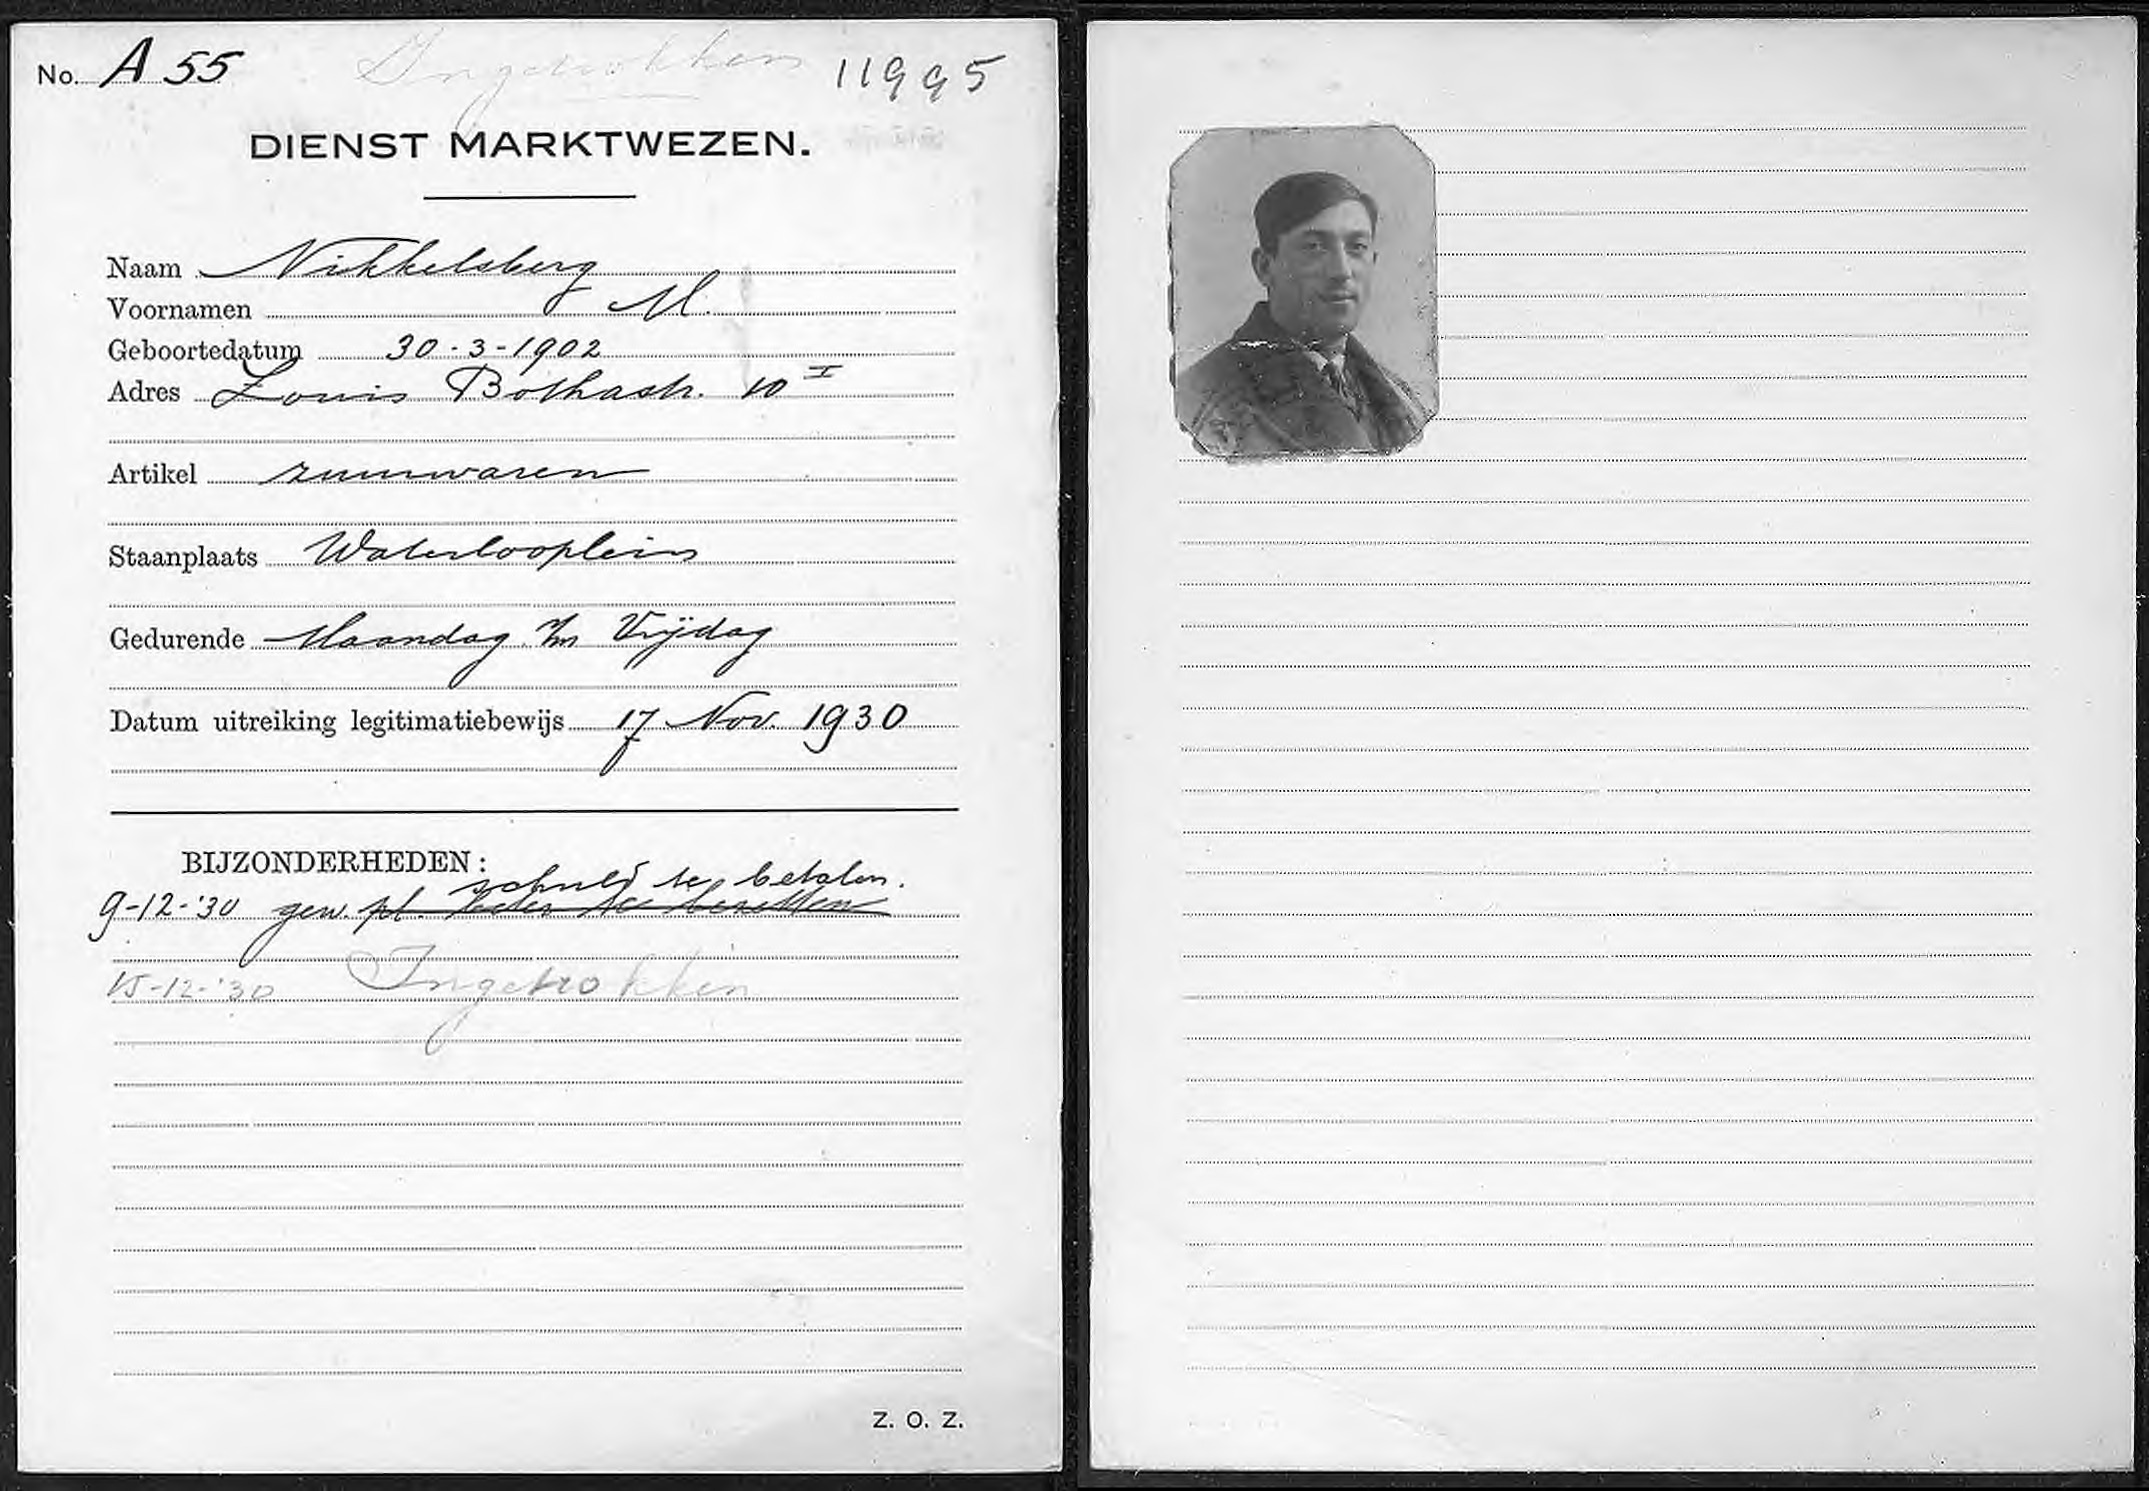 No. A 55 Ingetrokken 11995
DIENST MARKTWEZEN.
Naam Nikkelsberg
Voornamen M.
Geboortedatum 30-3-1902
Adres Louis Bothastr. 10 I
Artikel zuurwaren
Staanplaats Waterlooplein
Gedurende Maandag t/m Vrijdag
Datum uitreiking legitimatiebewijs 17 Nov. 1930
BIJZONDERHEDEN:
schuld te betalen.
9-12-'30 gew. pl. beter te bezetten
15-12-'30 Ingetrokken
Z. O. Z.